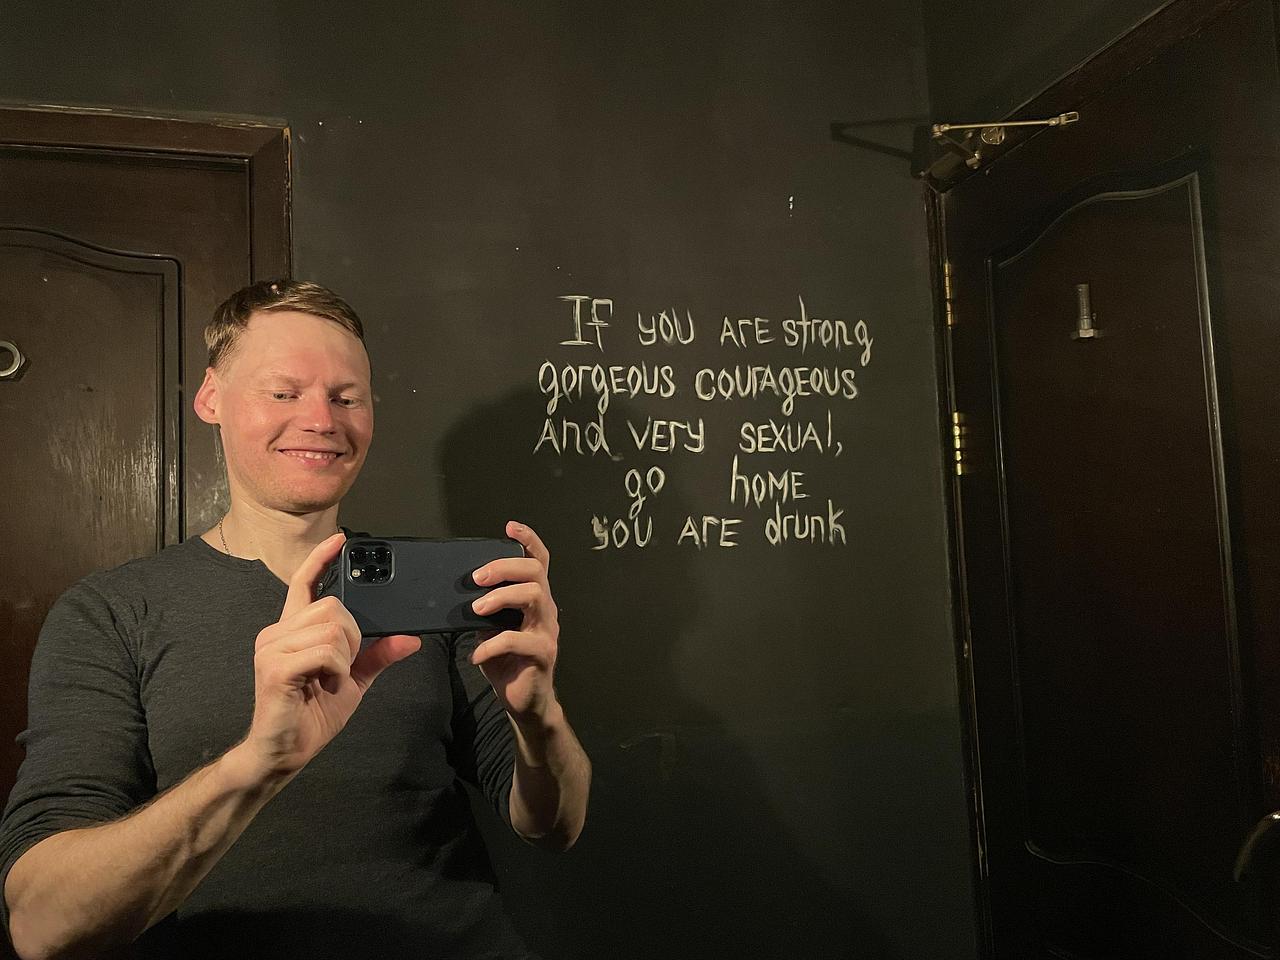 IF YOU ARE strong
gorgeous courageous
And VERY SEXUAl,
go home
YOU ARE drunk